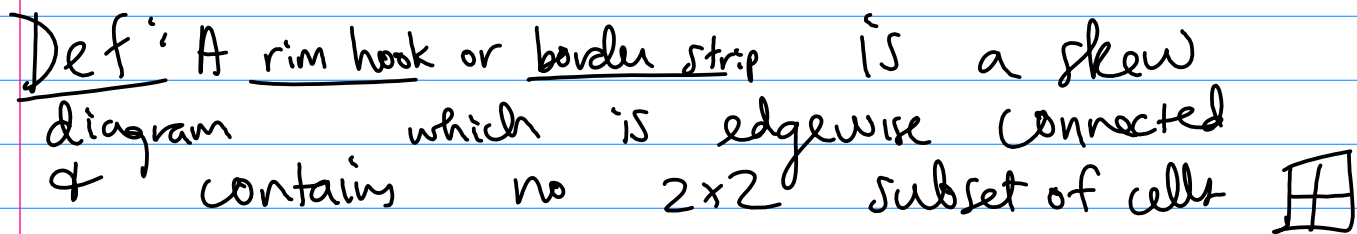 Def: A rim hook or border strip is a skew
diagram which is edgewise connected
& contains no 2×2 subset of cells